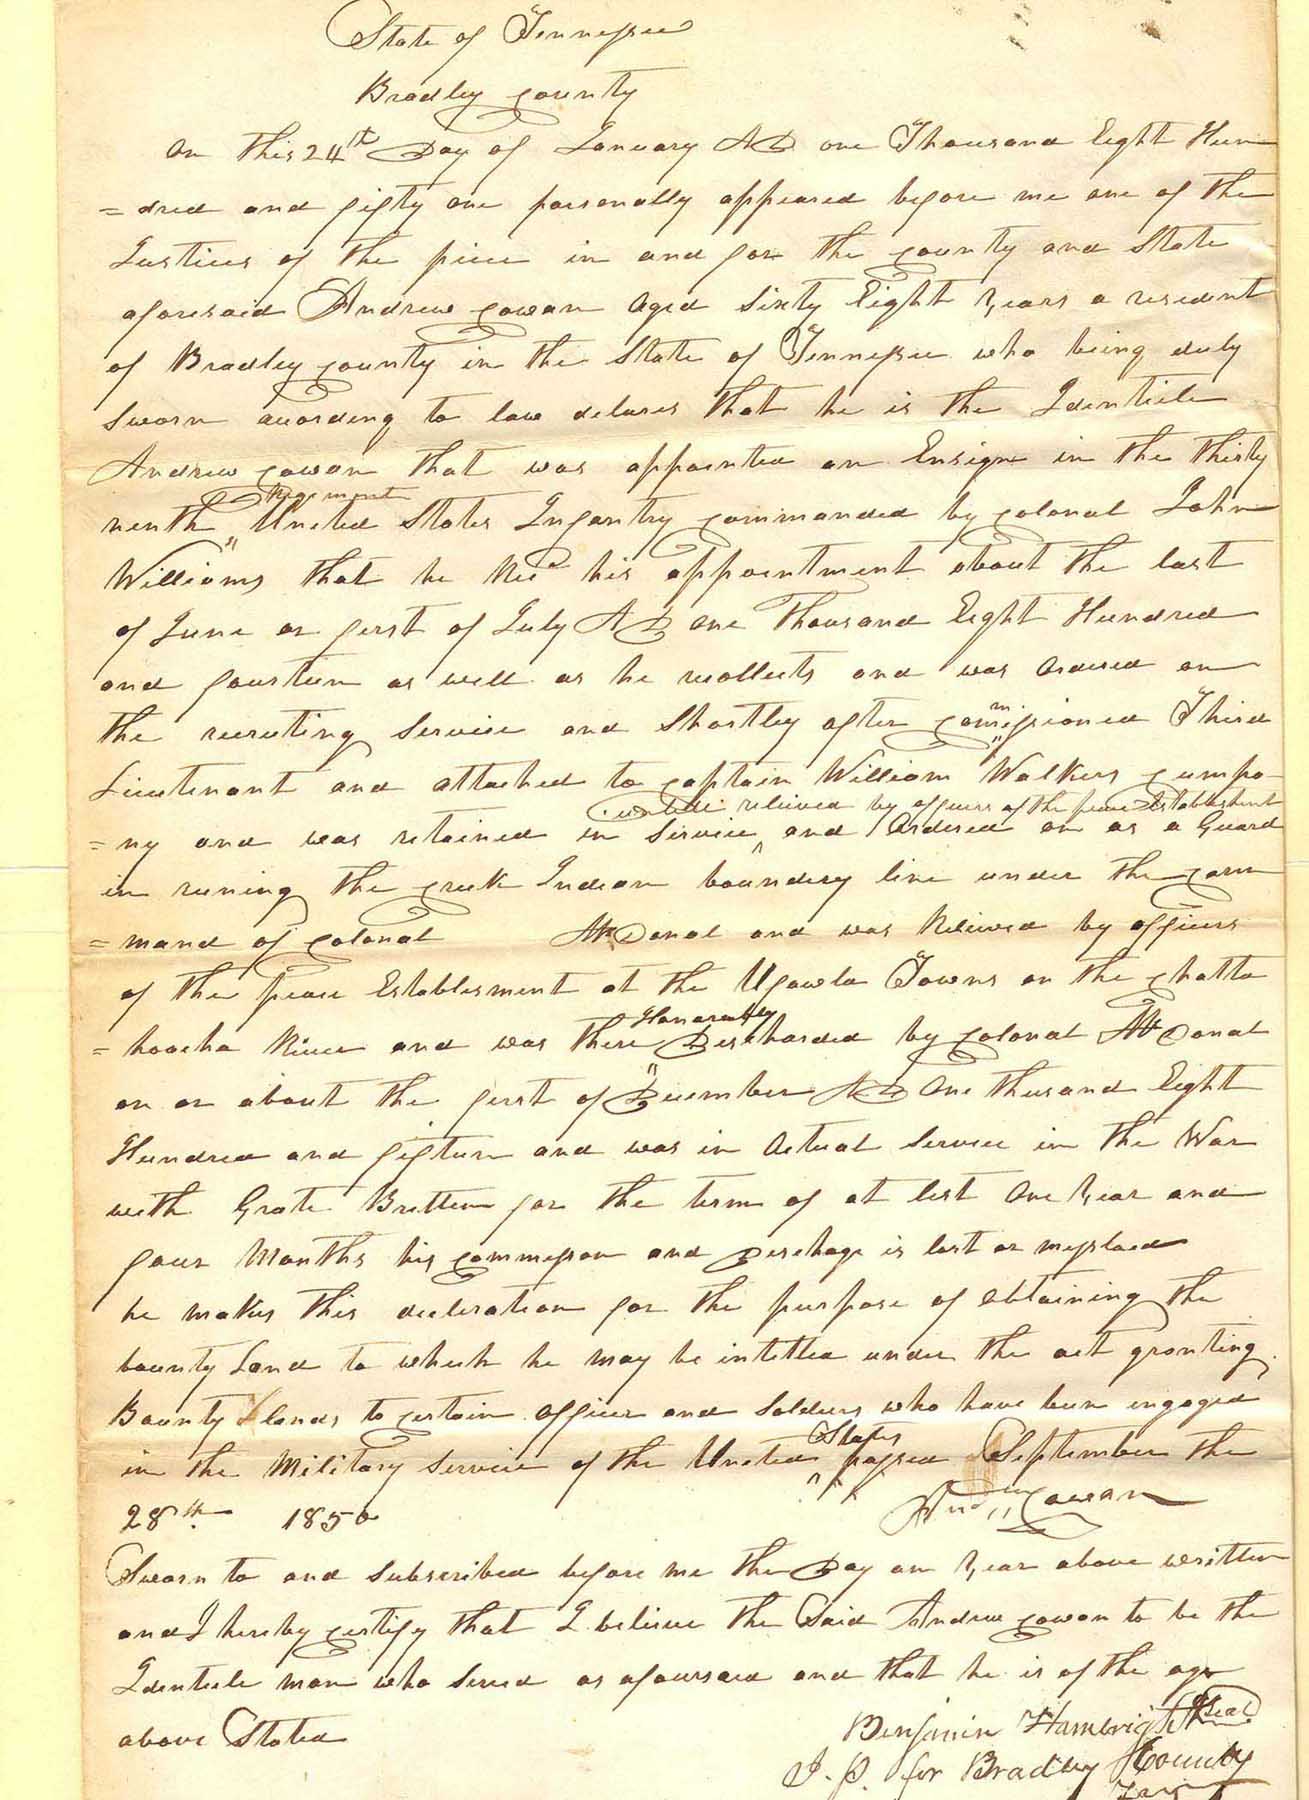 State of Tennessee
Bradley County
On this 24th Day of January AD one Thousand Eight Hun
= dred and fifty one parsonally appeared before me one of the
Justices of the piece in and for the County and State
aforesaid Andrew Cowan Aged Sixty Eight Years a resident
of Bradley County in the State of Tennessee who being duly
Sworn acording to law delares that he is the Identicle
Andrew Cowan that was appointed an Ensign in the thirty
Regiment
ninth " United States Infantry Commanded by Colonal John
Williams that he Recd his appointment about the last
of June or first of July AD one Thousand Eight Hundred
and fourteen as well as he recollects and was ordered on
the recruting Service and Shortley after Commissioned Third
Lieutenant and attached to Captain William Walkers Compa
untill relieved by officers of the peace Establishment
= ny and was retained in Service ^ and Ordered on as a Guard
in runing the Creek Indian boundery line under the Com
= mand of Colonal McDonal and was Relieved by officers
of the peace Establesment at the Ufawla Towns on the Chatta
Honorabley
= hoocha River and was there " Descharded by Colonal McDonal
on or about the first of December AD One thusand Eight
Hundred and fifteen and was in Actual Service in the War
with Grate Britten for the term of at lest One Year and
four Months his Commession and Deschage is lost or mesplaced
he makes this decleration for the purpose of obtaining the
bounty Land to which he may be intitled under the act granting
Bounty lands to Certain officer and Soldiers who have been ingaged
States
in the Military Service of the United " passed September the
28th 1850
Andw Cowan
Sworn to and Subscribed before me the Day an Year above written
and I hereby Certify that I believe the Said Andrew Cowan to be the
Identicle man who Served as afoursaid and that he is of the age
above Stated
Benjamin Hambright Seal
J. P. for Bradley County